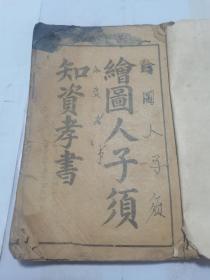 繪圖人子須
知資孝書
繪圖人子須